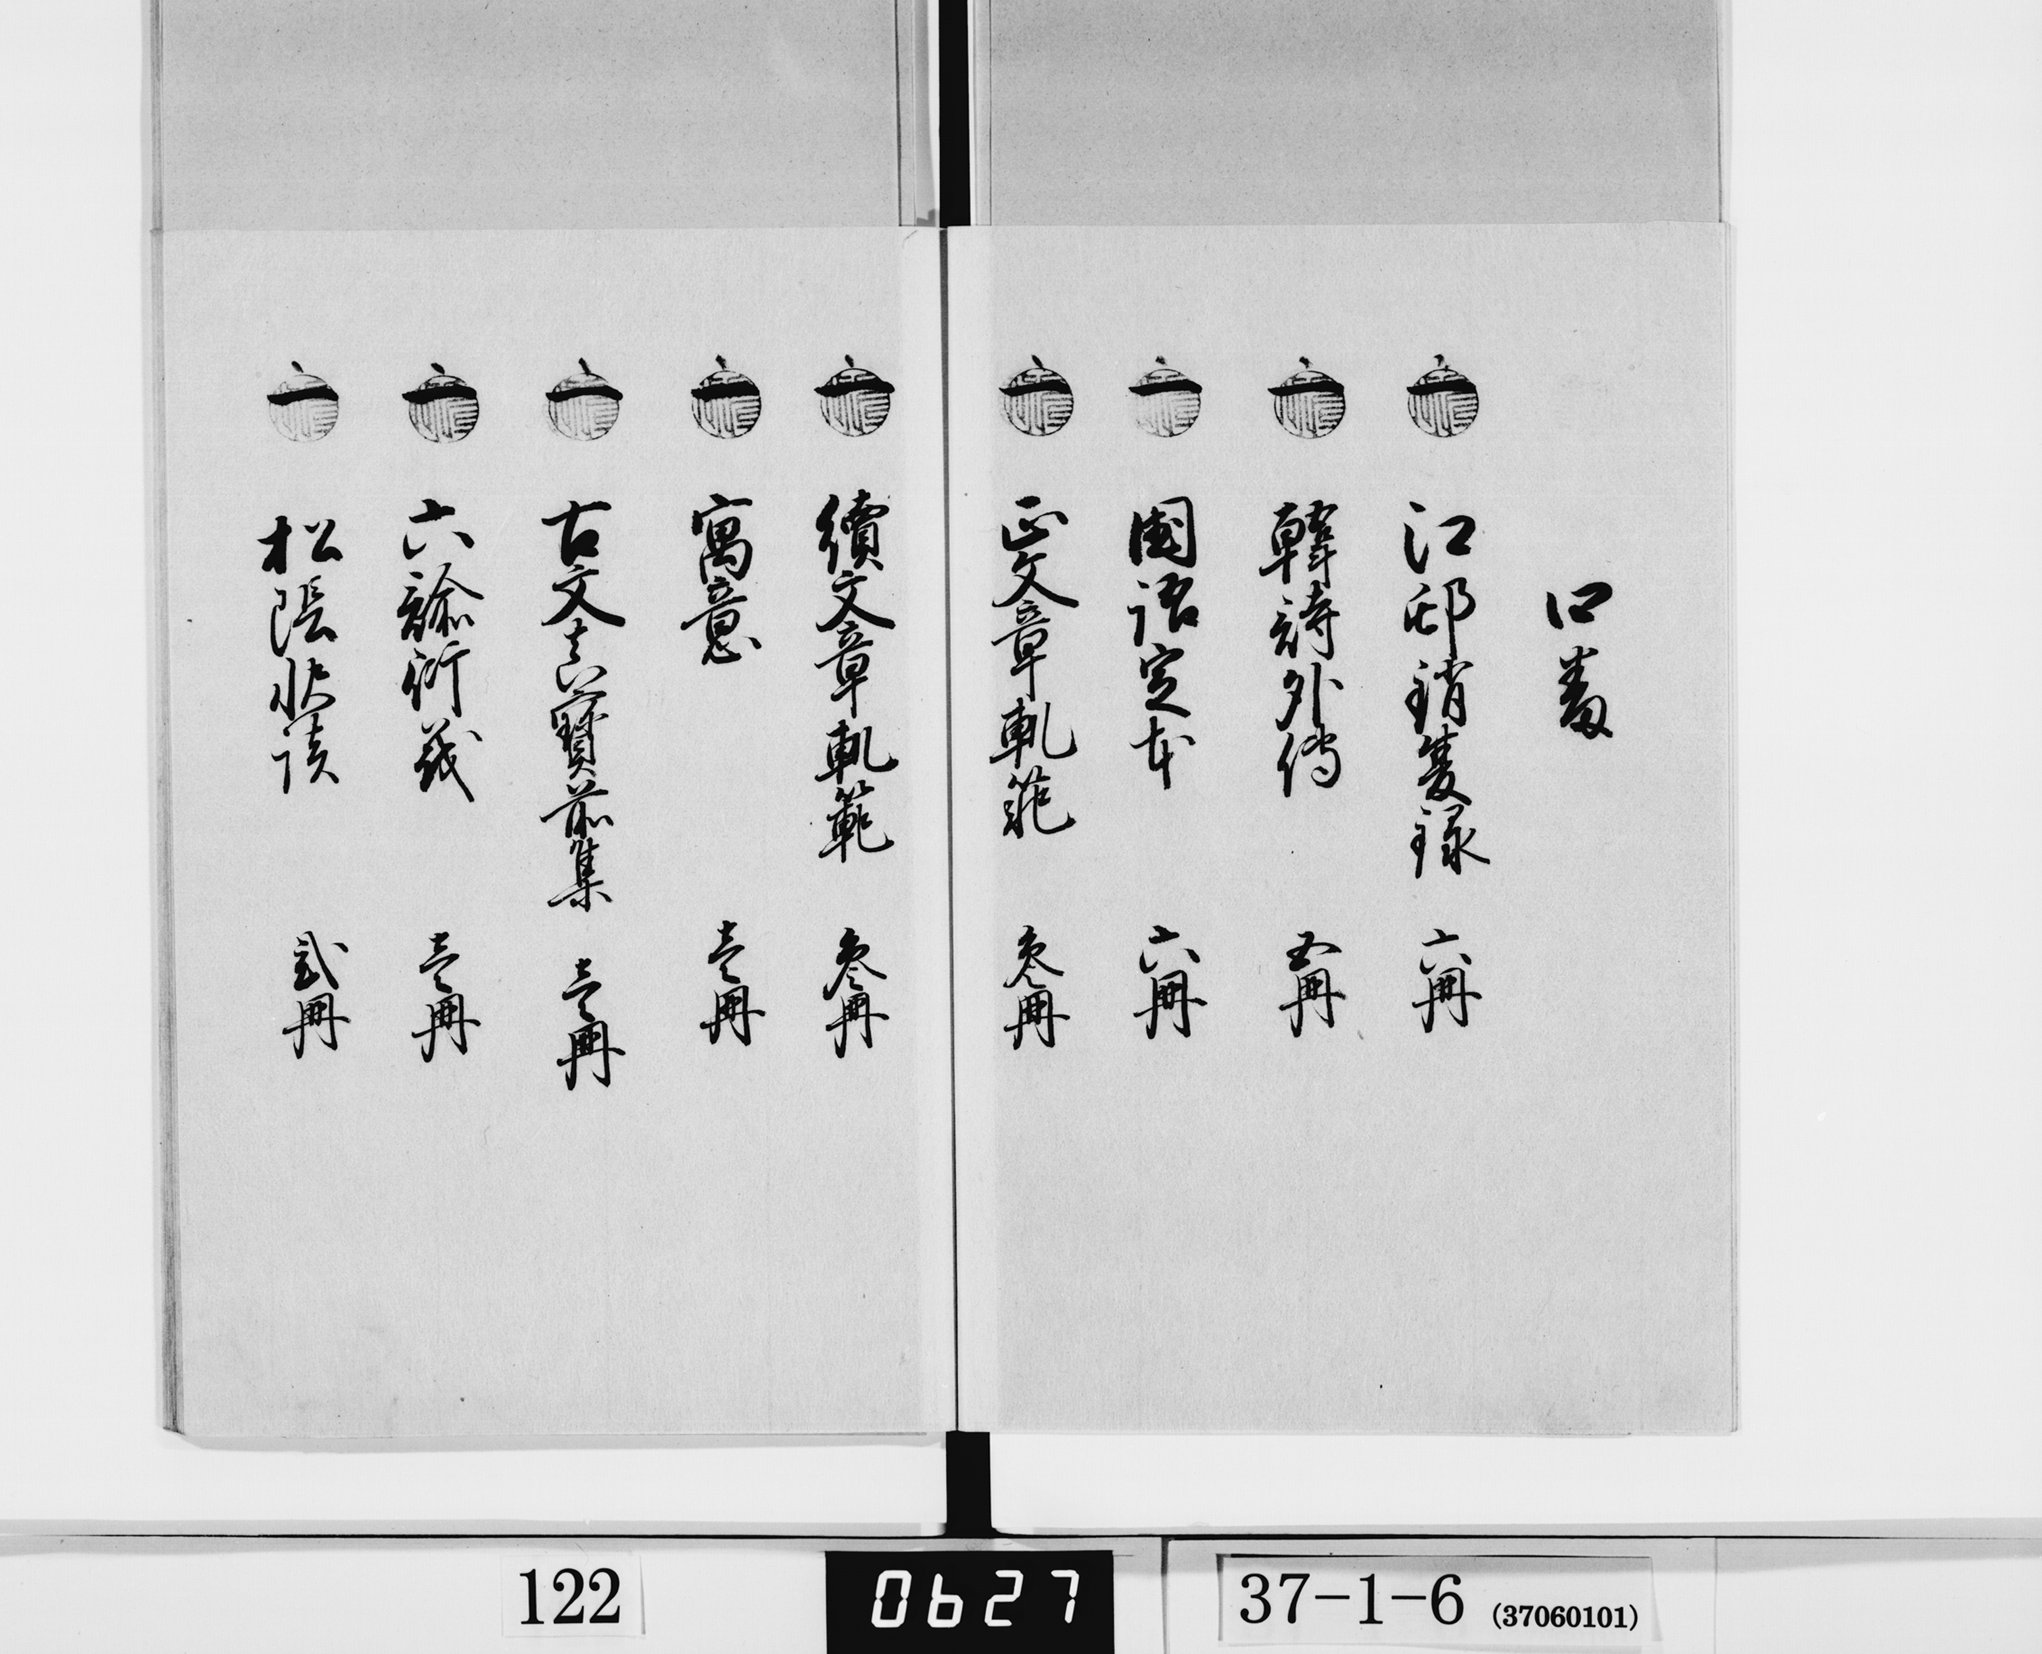 口番
一 江邨銷夏録 六冊
一 韓詩外傳 五冊
一 國語定本 六冊
一 正文章軌範 参冊
一 續文章軌範 参冊
一 寓意 壱冊
一 古文真寶前集 壱冊
一 六諭衍義 壱冊
一 松陰快談 弐冊
122
0627
37-1-6 (37060101)